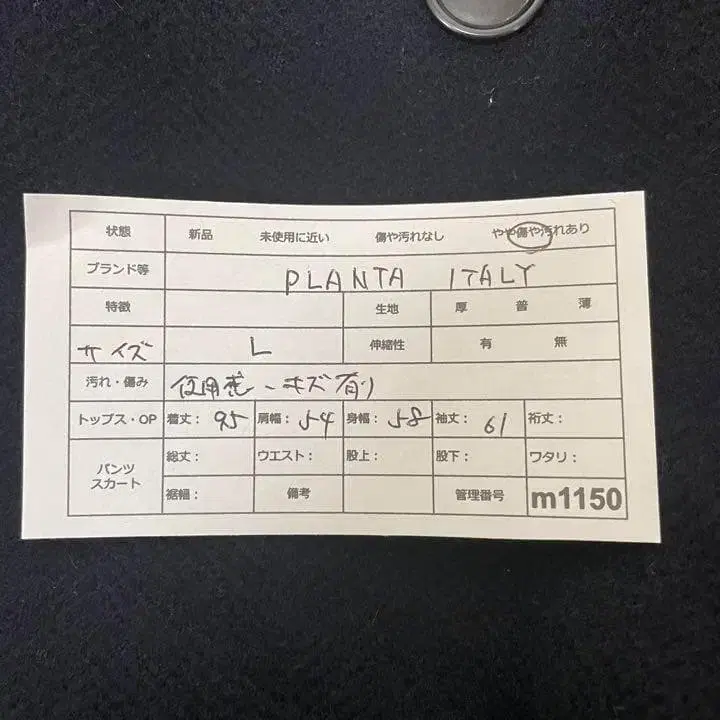 状態 新品 未使用に近い 傷や汚れなし やや傷や汚れあり
ブランド等 PLANTA ITALY
特徴 生地 厚 普 薄
サイズ L 伸縮性 有 無
汚れ・傷み 使用感、キズ有り
トップス・OP 着丈: 95 肩幅: 54 身幅: 58 袖丈: 61 裄丈:
パンツ スカート 総丈: ウエスト: 股上: 股下: ワタリ:
裾幅: 備考 管理番号 m1150